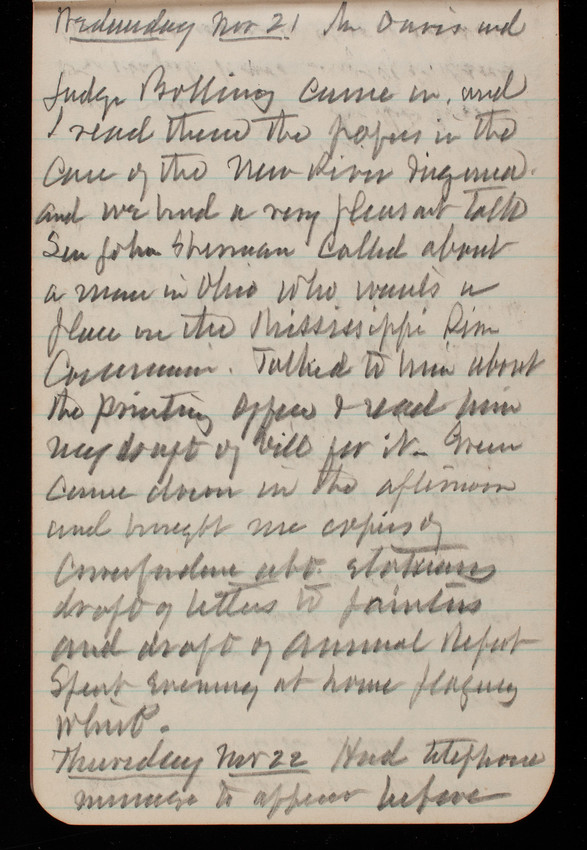 Wednesday Nov 21 Mr Davis and
Judge Bolling came in, and
I read them the papers in the
Case of the New River Inquiries.
and we had a very pleasant talk
Sen John Sherman called about
a man in Ohio who wants a
place in the Mississippi River
Commission. Talked to him about
the Printing Office & read him
my draft of bill for it. Green
came down in the afternoon
and brought me copies of
Correspondence abt. Statuary
draft of letters to painters
and draft of Annual Report
Spent Evening at home playing
whist.
Thursday Nov 22 Had telephone
message to appear before